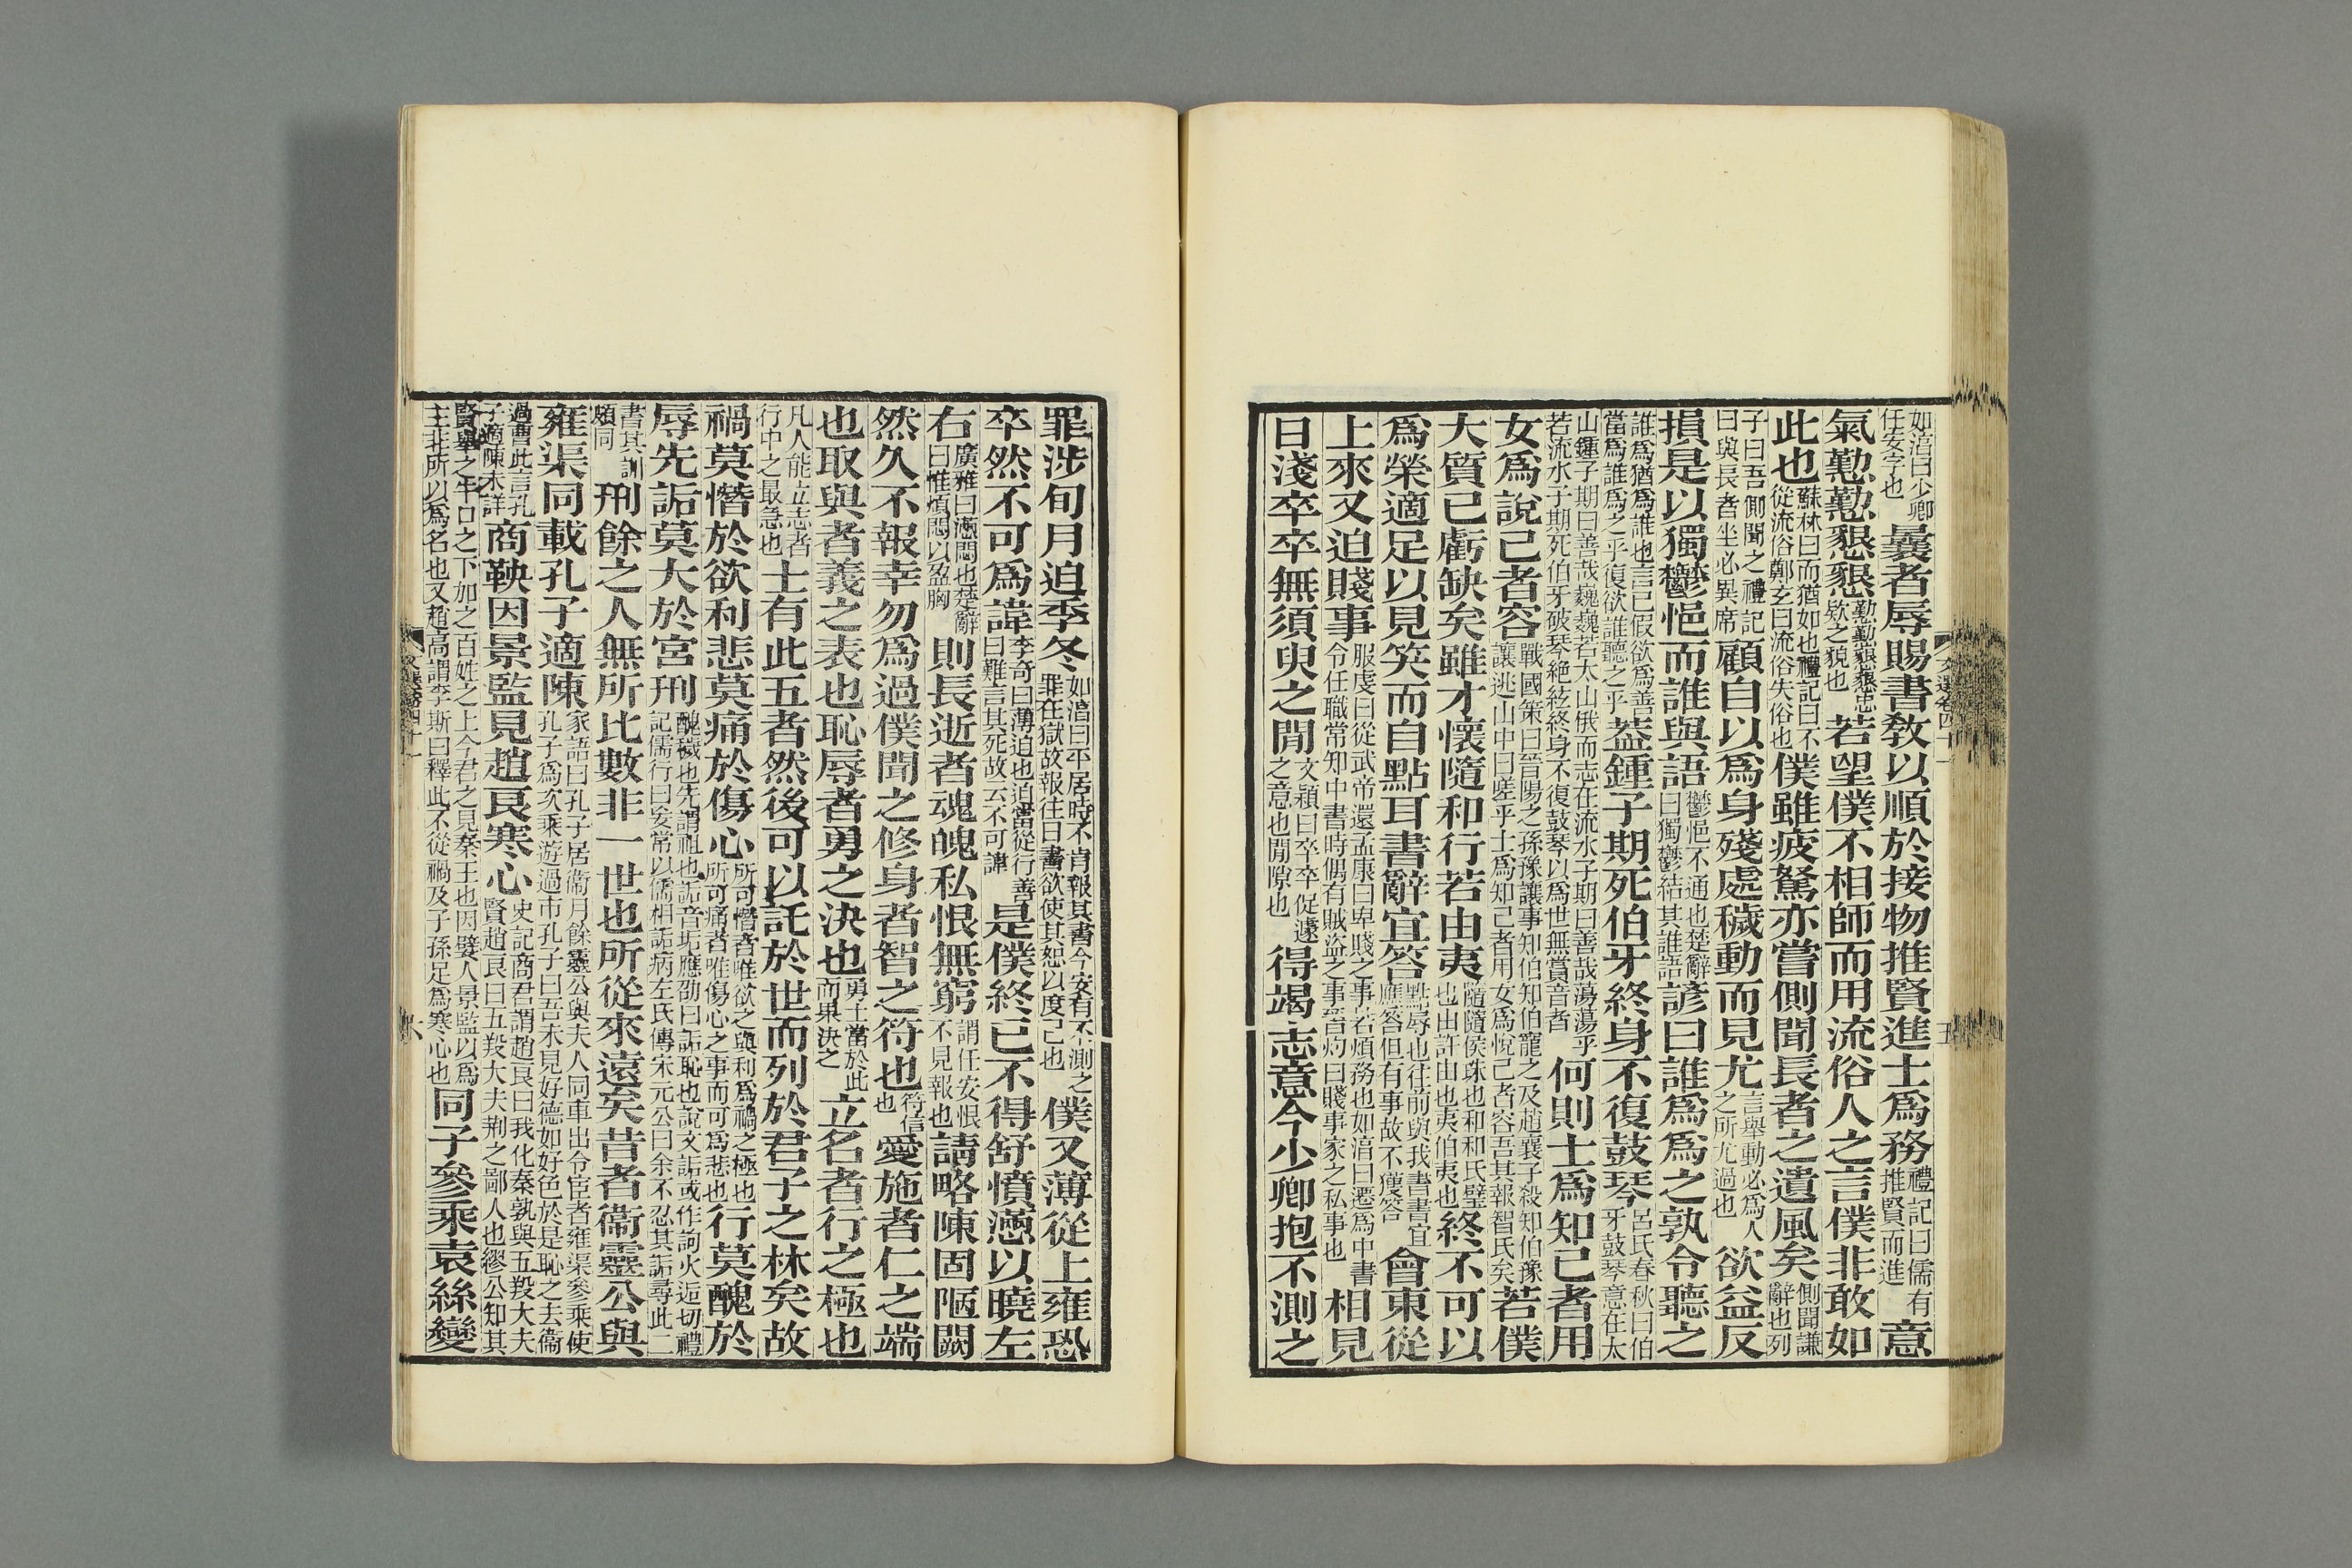 文選卷四十一 五
如淳曰少卿任安字也曩者辱賜書教以順於接物推賢進士爲務禮記曰儒有推賢而進意
氣懃懃懇懇懃懃懇懇忠欵之貌也若望僕不相師而用流俗人之言僕非敢如
此也蘇林曰而猶如也禮記曰不從流俗鄭玄曰流俗失俗也僕雖疲駑亦嘗側聞長者之遺風矣側聞謙辭也列
子曰吾側聞之禮記曰與長者坐必異席顧自以爲身殘處穢動而見尤言舉動必爲人之所尤過也欲益反
損是以獨鬱悒而誰與語鬱悒不通也楚辭曰獨鬱結其誰語諺曰誰爲爲之孰令聽之
誰爲猶爲誰也言己假欲爲善當爲誰爲之乎復欲誰聽之乎葢鍾子期死伯牙終身不復鼓琴呂氏春秋曰伯牙鼓琴意在太
山鍾子期曰善哉巍巍若太山俄而志在流水子期曰善哉蕩蕩乎若流水子期死伯牙破琴絶絃終身不復鼓琴以爲世無賞音者何則士爲知己者用
女爲說己者容戰國策曰晉陽之孫豫讓事知伯知伯寵之及趙襄子殺知伯豫讓逃山中曰嗟乎士爲知己者用女爲悅己者容吾其報智氏矣若僕
大質已虧缺矣雖才懷隨和行若由夷隨隨侯珠也和和氏璧也由許由也夷伯夷也終不可以
爲榮適足以見笑而自點耳書辭宜答點辱也往前與我書書宜應答但有事故不獲答會東從
上來又迫賤事服虔曰從武帝還孟康曰卑賤之事若煩務也如淳曰遷爲中書令任職常知中書時偶有賊盜之事晉灼曰賤事家之私事也相見
日淺卒卒無須臾之閒文穎曰卒卒促遽之意也閒隙也得竭志意今少卿抱不測之
罪涉旬月迫季冬如淳曰平居時不肯報其書今安有不測之罪在獄故報往日書欲使其恕以度己也僕又薄從上雍恐
卒然不可爲諱李奇曰薄迫也迫當從行善曰難言其死故云不可諱是僕終已不得舒憤懣以曉左
右廣雅曰懣悶也楚辭曰惟煩悶以盈胸則長逝者魂魄私恨無窮謂任安恨不見報也請略陳固陋闕
然久不報幸勿爲過僕聞之修身者智之符也符信也愛施者仁之端
也取與者義之表也恥辱者勇之決也勇士當於此而果決之立名者行之極也
凡人能立志者行中之最急也士有此五者然後可以託於世而列於君子之林矣故
禍莫憯於欲利悲莫痛於傷心所可憯者唯欲之與利爲禍之極也所可痛者唯傷心之事而可爲悲也行莫醜於
辱先詬莫大於宮刑醜穢也先謂祖也詬音垢應劭曰詬恥也說文詬或作訽火逅切禮記儒行曰妄常以儒相詬病左氏傳宋元公曰余不忍其詬尋此二
書其訓頗同刑餘之人無所比數非一世也所從來遠矣昔者衞靈公與
雍渠同載孔子適陳家語曰孔子居衞月餘靈公與夫人同車出令宦者雍渠參乘使孔子爲次乘遊過市孔子曰吾未見好德如好色於是恥之去衞
過曹此言孔子適陳未詳商鞅因景監見趙良寒心史記商君謂趙良曰我化秦孰與五羖大夫賢趙良曰五羖大夫荊之鄙人也繆公知其
賢舉之牛口之下加之百姓之上今君之見秦王也因嬖人景監以爲主非所以爲名也又趙高謂李斯曰釋此不從禍及子孫足爲寒心也同子參乘袁絲變
文選卷四十一 六